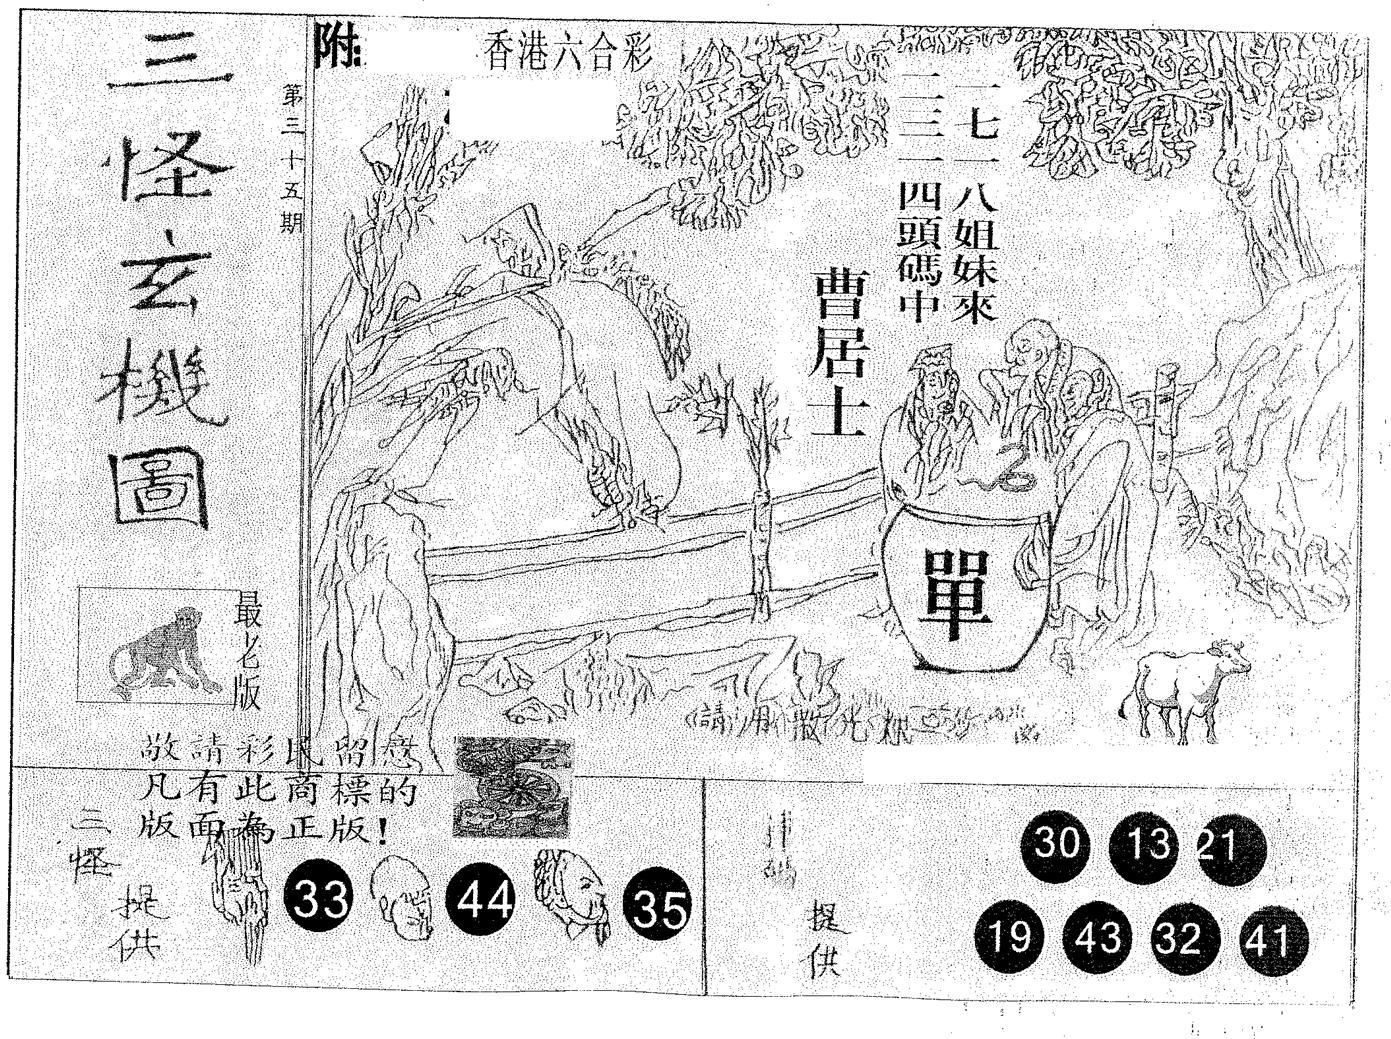 三怪玄機圖
第三十五期
附:
香港六合彩
一七一八姐妹來
二三三一四四頭碼中
曹居士
單
最老版
敬請彩民留意
凡有此商標的
版面為正版!
三怪
提供
33 44 35
提供
30 13 21
19 43 32 41